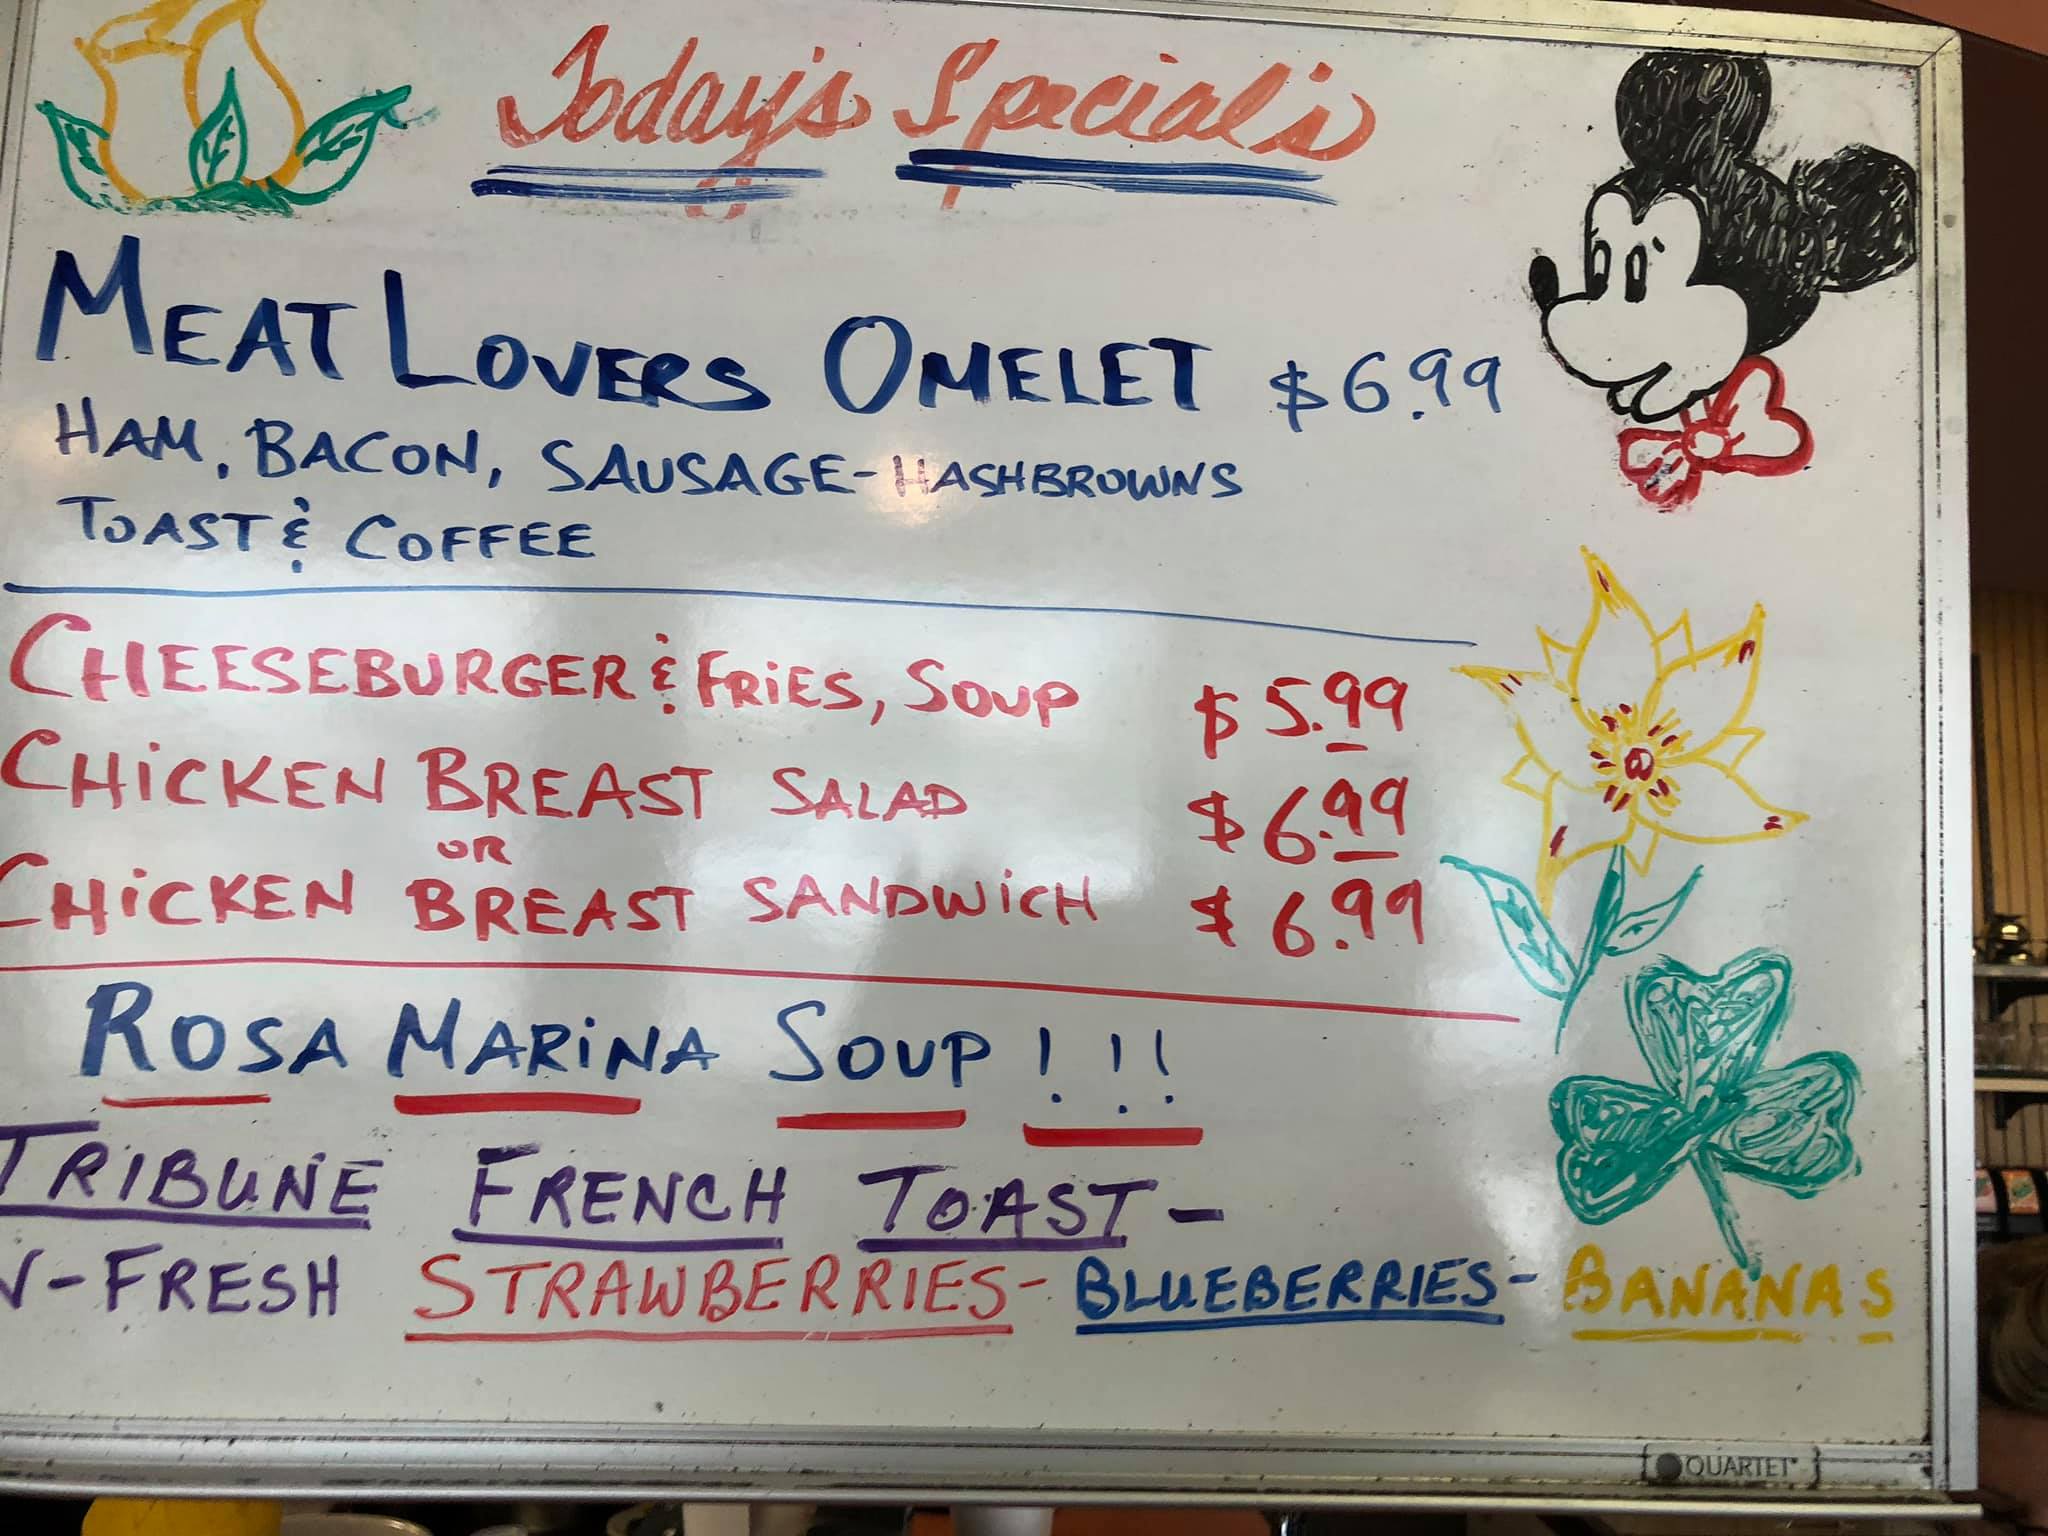 Today's Special's
MEAT LOVERS OMELET $6.99
HAM, BACON, SAUSAGE-HASHBROWNS
TOAST & COFFEE
CHEESEBURGER & FRIES, SOUP $5.99
CHICKEN BREAST SALAD $6.99
OR
CHICKEN BREAST SANDWICH $6.99
ROSA MARINA SOUP!!!
TRIBUNE FRENCH TOAST-
-FRESH STRAWBERRIES-BLUEBERRIES-BANANAS
QUARTET